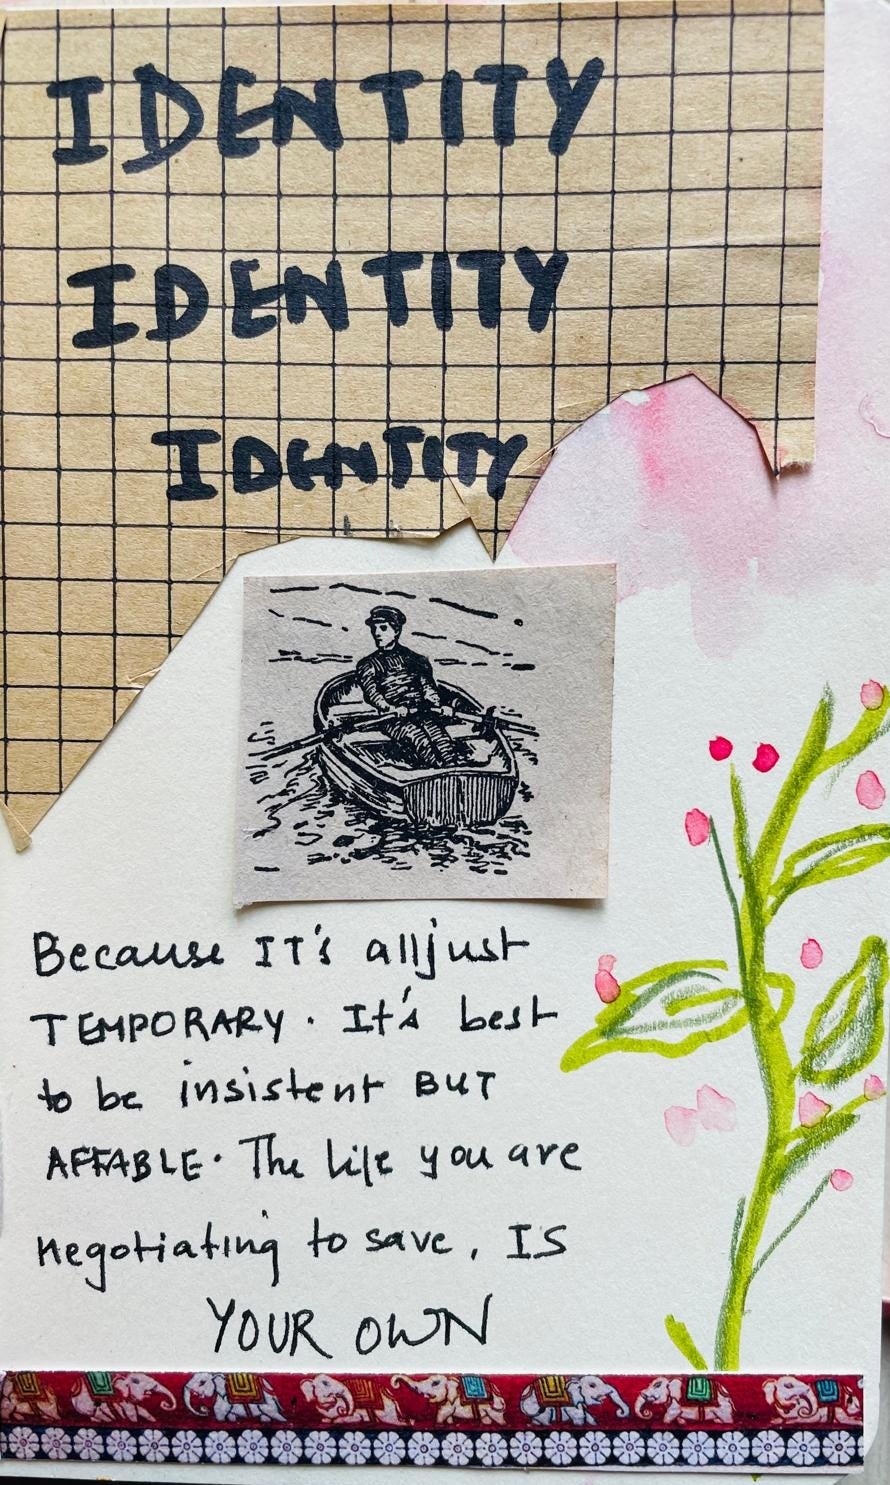 IDENTITY
IDENTITY
IDENTITY
Because IT's all just
TEMPORARY. It's best
to be insistent BUT
AFFABLE. The life you are
negotiating to save, IS
YOUR OWN